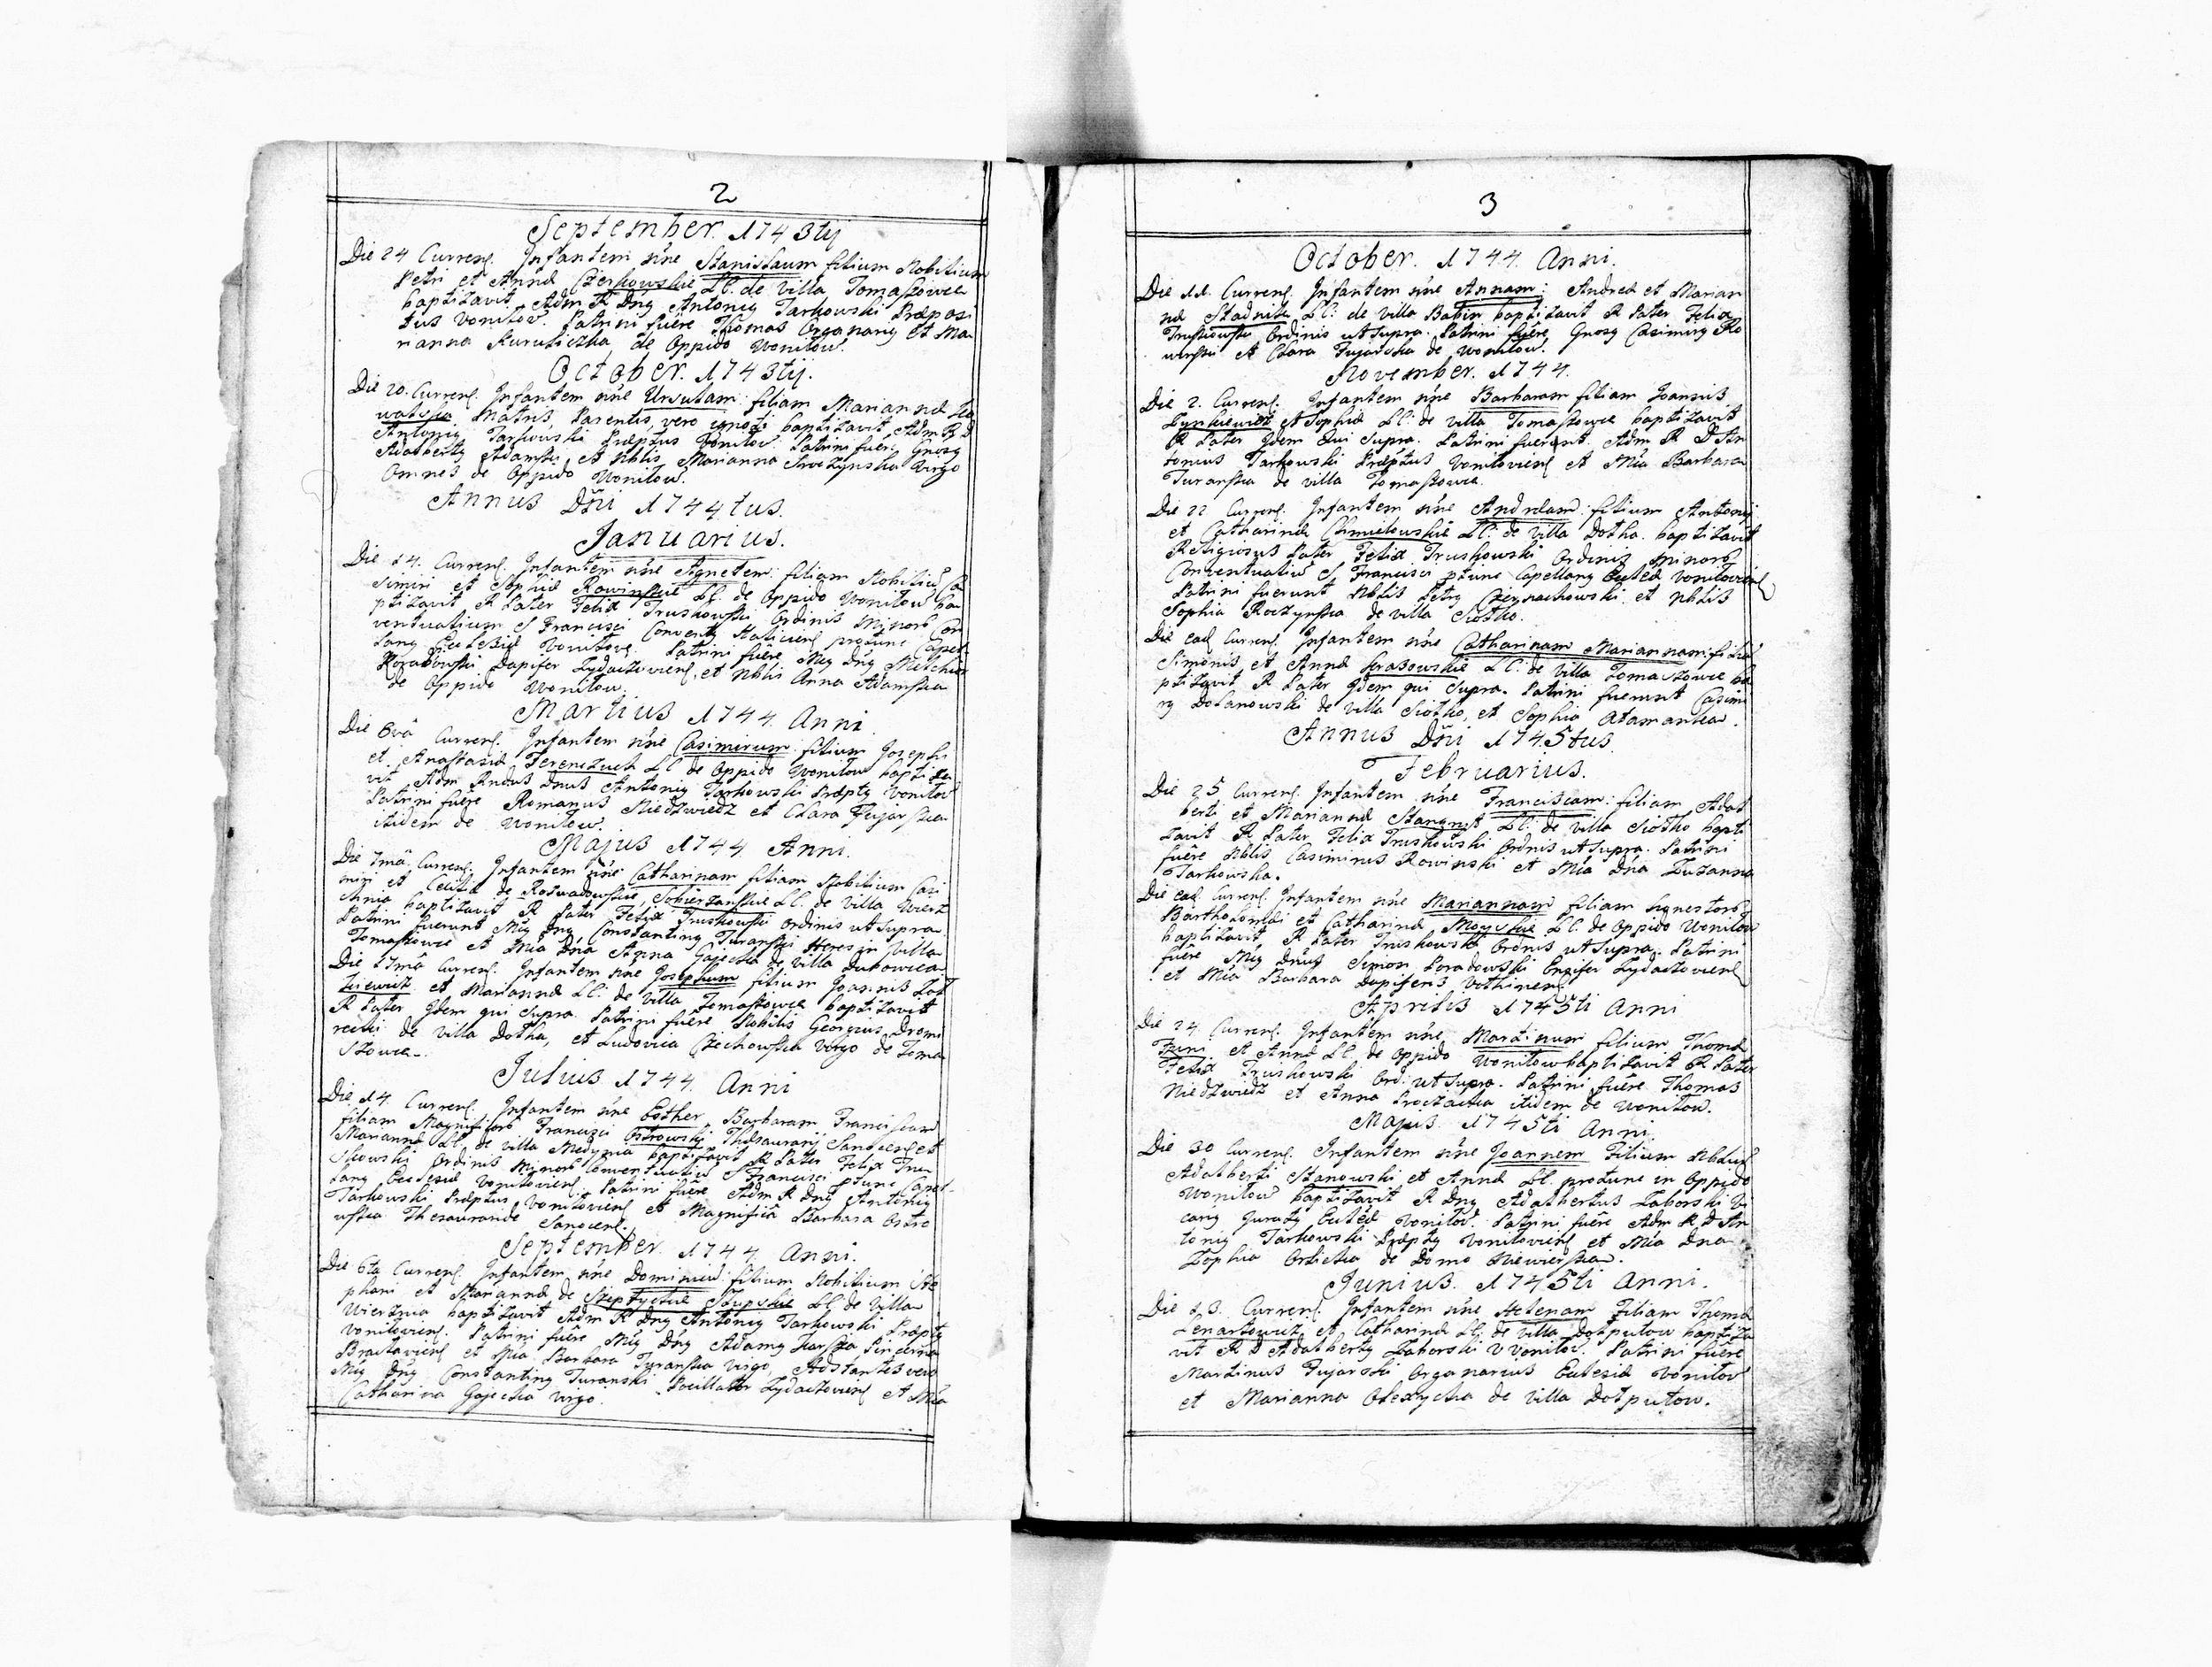 2
September. 1743tij
Die 24 Currens. Infantem n̄ne Stanislaum filium Nobilium
Petri et Annæ Czerkowskie LC. de Villa Tomaszowce
baptizavit Adm R Dn9 Antoni9 Tarkowski Præposi
tus Vonitov. Patrini fuêre Thomas Organari9 Et Ma
rianna de Oppido Wonitow.
October. 1743tij.
Die 20. Currens. Infantem n̄ne Ursulam: filiam Mariannæ
Matris, Parentis, vero ignoti baptizavit, Adm R D
Antoni9 Tarkowski Præptus Vonitov Patrini fuer: Gnos9
Adalbert9 Adamski, et Nblis Marianna Virgo
Omnes de Oppido Wonitow.
Annus Dn̄i 1744tus.
Januarius.
Die 14. Currens. Infantem n̄ne Agnetem: filiam Nobiliū Ca
simiri et Sophiæ Rowinskie LC. de Oppido Wonitow ba
ptizavit R Pater Felix Truskowski Ordinis Minorū Con
ventualium S Francisci Convent9 Haliciens protunc Capel
lan9 Ecclesiæ Vonitov. Patrini fuêre M̄g9 Dn̄9 Melchior
Dapifer Zydaczoviens. et Nblis Anna Adamska
de Oppido Wonitow.
Martius 1744. Anni.
Die 8vâ Currens. Infantem n̄ne Casimirum filium Josephi
et Anastasiæ Ferenczuch LC de Oppido Wonitow bapti za
vit Adm Rndus Dnus Antoni9 Tarkowski Præpt9 Vonitov
Patrini fuêre Romanus Niedzwiedz et Clara Fujarska
itidem de Wonitow.
Majus 1744 Anni.
Die 7mâ. Currens. Infantem n̄ne Catharinam filiam Nobilium Casi
miri et de Rozwadowskie, Sobierzanskie LC. de Villa Wierz
chnia baptizavit R Pater Felix Truskowski Ordinis ut Supra
Patrini fuerunt M̄g9 Dn̄9 Constantin9 Turanski Heres in Villa
Tomaszowce et M̄a Dn̄a Anna Gajecka de Villa Dubowica
Die 17mâ Currens. Infantem n̄ne Josephum filium Joannis
et Mariannæ LC. de Villa Tomaszowce baptizavit
R Pater Idem qui Supra. Patrini fuêre Nobilis Georgius Dromi
recki de Villa Dotha, et Ludovica Czechowska Virgo de Toma
szowce.
Julius 1744. Anni
Die 14. Currens. Infantem n̄ne Esther, Barbaram Franciscam
filiam Magnificorū Francisci Ostrowski Thesaurarij Sanociens et
Mariannæ LC. de Villa Medynia baptizavit R Pater Felix Trus
kowski Ordinis Minorū Conventualiū S Francisci ptunc Capel
lan9 Ecclesiæ Vonitoviens. Patrini fuêre Adm R Dn̄9 Antoni9
Tarkowski Præptus Vonitoviens et Magnifica Barbara Ostro
wska Thesauraride Sanociens.
September. 1744 Anni.
Die 6ta Currens. Infantem n̄ne Dominicū filium Nobilium Ste
phani et Mariannæ de Szeptyckie Stupskie LC. de Villa
Wierznia baptizavit Adm R Dn̄9 Antoni9 Tarkowski Præpt9
Vonitoviens. Patrini fuêre M̄g9 Dn̄9 Adam9 Karsza Pincerna
Braclaviens et M̄a Barbara Turanska Virgo, Adstantes vero
M̄g9 Dn̄9 Constantin9 Turanski Pocillator Zydaczoviens et M̄a
Catharina Gajecka Virgo.
3
October. 1744. Anni.
Die 11. Currens. Infantem n̄ne Annam: Andreæ et Marian
næ Stadnik LC: de Villa Babin baptizavit R Pater Felix
Truskowski Ordinis ut Supra. Patrini fuêre, Gnos9 Casimir9 Ro
winski et Clara Fujarska de Wonitow.
November. 1744.
Die 2. Currens. Infantem n̄ne Barbaram filiam Joannis
Zynkiewicz et Sophiæ LC: de Villa Tomaszowce baptizavit
R Pater Idem Qui Supra. Patrini fuerunt. Adm R D An
tonius Tarkowski Præptus Vonitoviens et M̄a Barbara
Turanska de Villa Tomaszowce.
Die 22 Currens. Infantem n̄ne Andream: filium Antonij
et Catharinæ Chmielowskie LC. de Villa Dotha. baptizavit
Religiosus Pater Felix Truskowski Ordinis Minorū
Conventualiū S Francisci ptunc Capellan9 Eccleæ Vonitoviens
Patrini fuerunt Nblis Petr9 et Nblis
Sophia Roczynska de Villa Siotko.
Die eadē Currens. Infantem n̄ne Catharinam Mariannam: filiā
Simonis et Annæ Grabowskie LC: de Villa Tomaszowce ba
ptizavit R Pater Idem qui Supra. Patrini fuerunt Casimi
r9 Dolanowski de Villa Siotko, et Sophia Atamanka.
Annus Dn̄i 1745tus.
Februarius.
Die 25 Currens. Infantem n̄ne Franciscam: filiam Adal
berti et Mariannæ LC: de Villa Siotko bapti
zavit R Pater Felix Truskowski Ordinis ut Supra. Patrini
fuêre Nblis Casimirus Rowinski et M̄a Dn̄a Zuzanna
Tarkowska.
Die eadē Currens. Infantem n̄ne Mariannam filiam honestorū
Bartholomæi et Catharinæ LC. de Oppido Wonitow
baptizavit R Pater Truskowski Ordinis ut Supra. Patrini
fuêre M̄g9 Dn̄us Simon Poradowski Ensifer Zydaczoviens
et M̄a Barbara Dapiferis
Aprilis 1745ti Anni
Die 24 Currens. Infantem n̄ne Martinum filium Thomæ
et Annæ LC. de Oppido Wonitow baptizavit R Pater
Felix Truskowski Ord: ut Supra. Patrini fuêre Thomas
Niedzwiedz et Anna itidem de Wonitow.
Majus. 1745ti Anni.
Die 30 Currens. Infantem n̄ne Joannem Filium Nbliū
Adalberti Stanowski et Annæ LC. protunc in Oppido
Wonitow baptizavit R Dn̄9 Adalbertus Zaborski Vi
cari9 Jurat9 Eccleæ Vonitov. Patrini fuêre Adm R D An
toni9 Tarkowski Præpt9 Vonitoviens et M̄a Dn̄a
Zophia Orlicka de Domo Niewierska.
Junius. 1745ti Anni.
Die 13. Currens. Infantem n̄ne Helenam Filiam Thomæ
Lenartowicz et Catharinæ LC: de Villa Dolputow baptiza
vit R D Adalbert9 Zaborski V Vonitov. Patrini fuêre
Martinus Fujarski Organarius Ecclesiæ Vonitov
et Marianna Olexycka de Villa Dolputow.